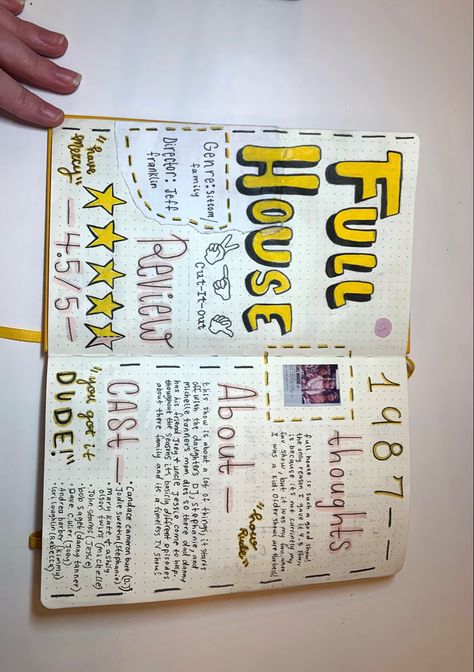 FULL
HOUSE
Genre: Sitcom
family
Director: Jeff
franklin
Cut-It-Out
Review
"have
Mercy"
— 4.5/5 —
1987 —
thoughts
full house is such a good show!
the only reason I gave it 4.5 stars
is because its not currently my
fav show but it was my fav when
I was a kid. Older shows are the best!
"how
Rude"
About —
this show is about a lot of things, it starts
off with the daughters D.J, stephanie, and
michelle tanners mom dies & there dad danny
has his friend Joey + uncle Jessie come to help.
thoughout the seasons its basicly diffrent episodes
about there family and its a timeless TV show!
Cast —
"you got it
DUDE!"
Candace cameron bure (D.J)
Jodie sweetin (Stephanie)
mary kate & ashly
olson twins (michelle)
John stamos (Jessie)
bob saget (danny tanner)
Dave culier (Joey)
Andrea barber (kimmy)
Lori loughlin (Rebecca)